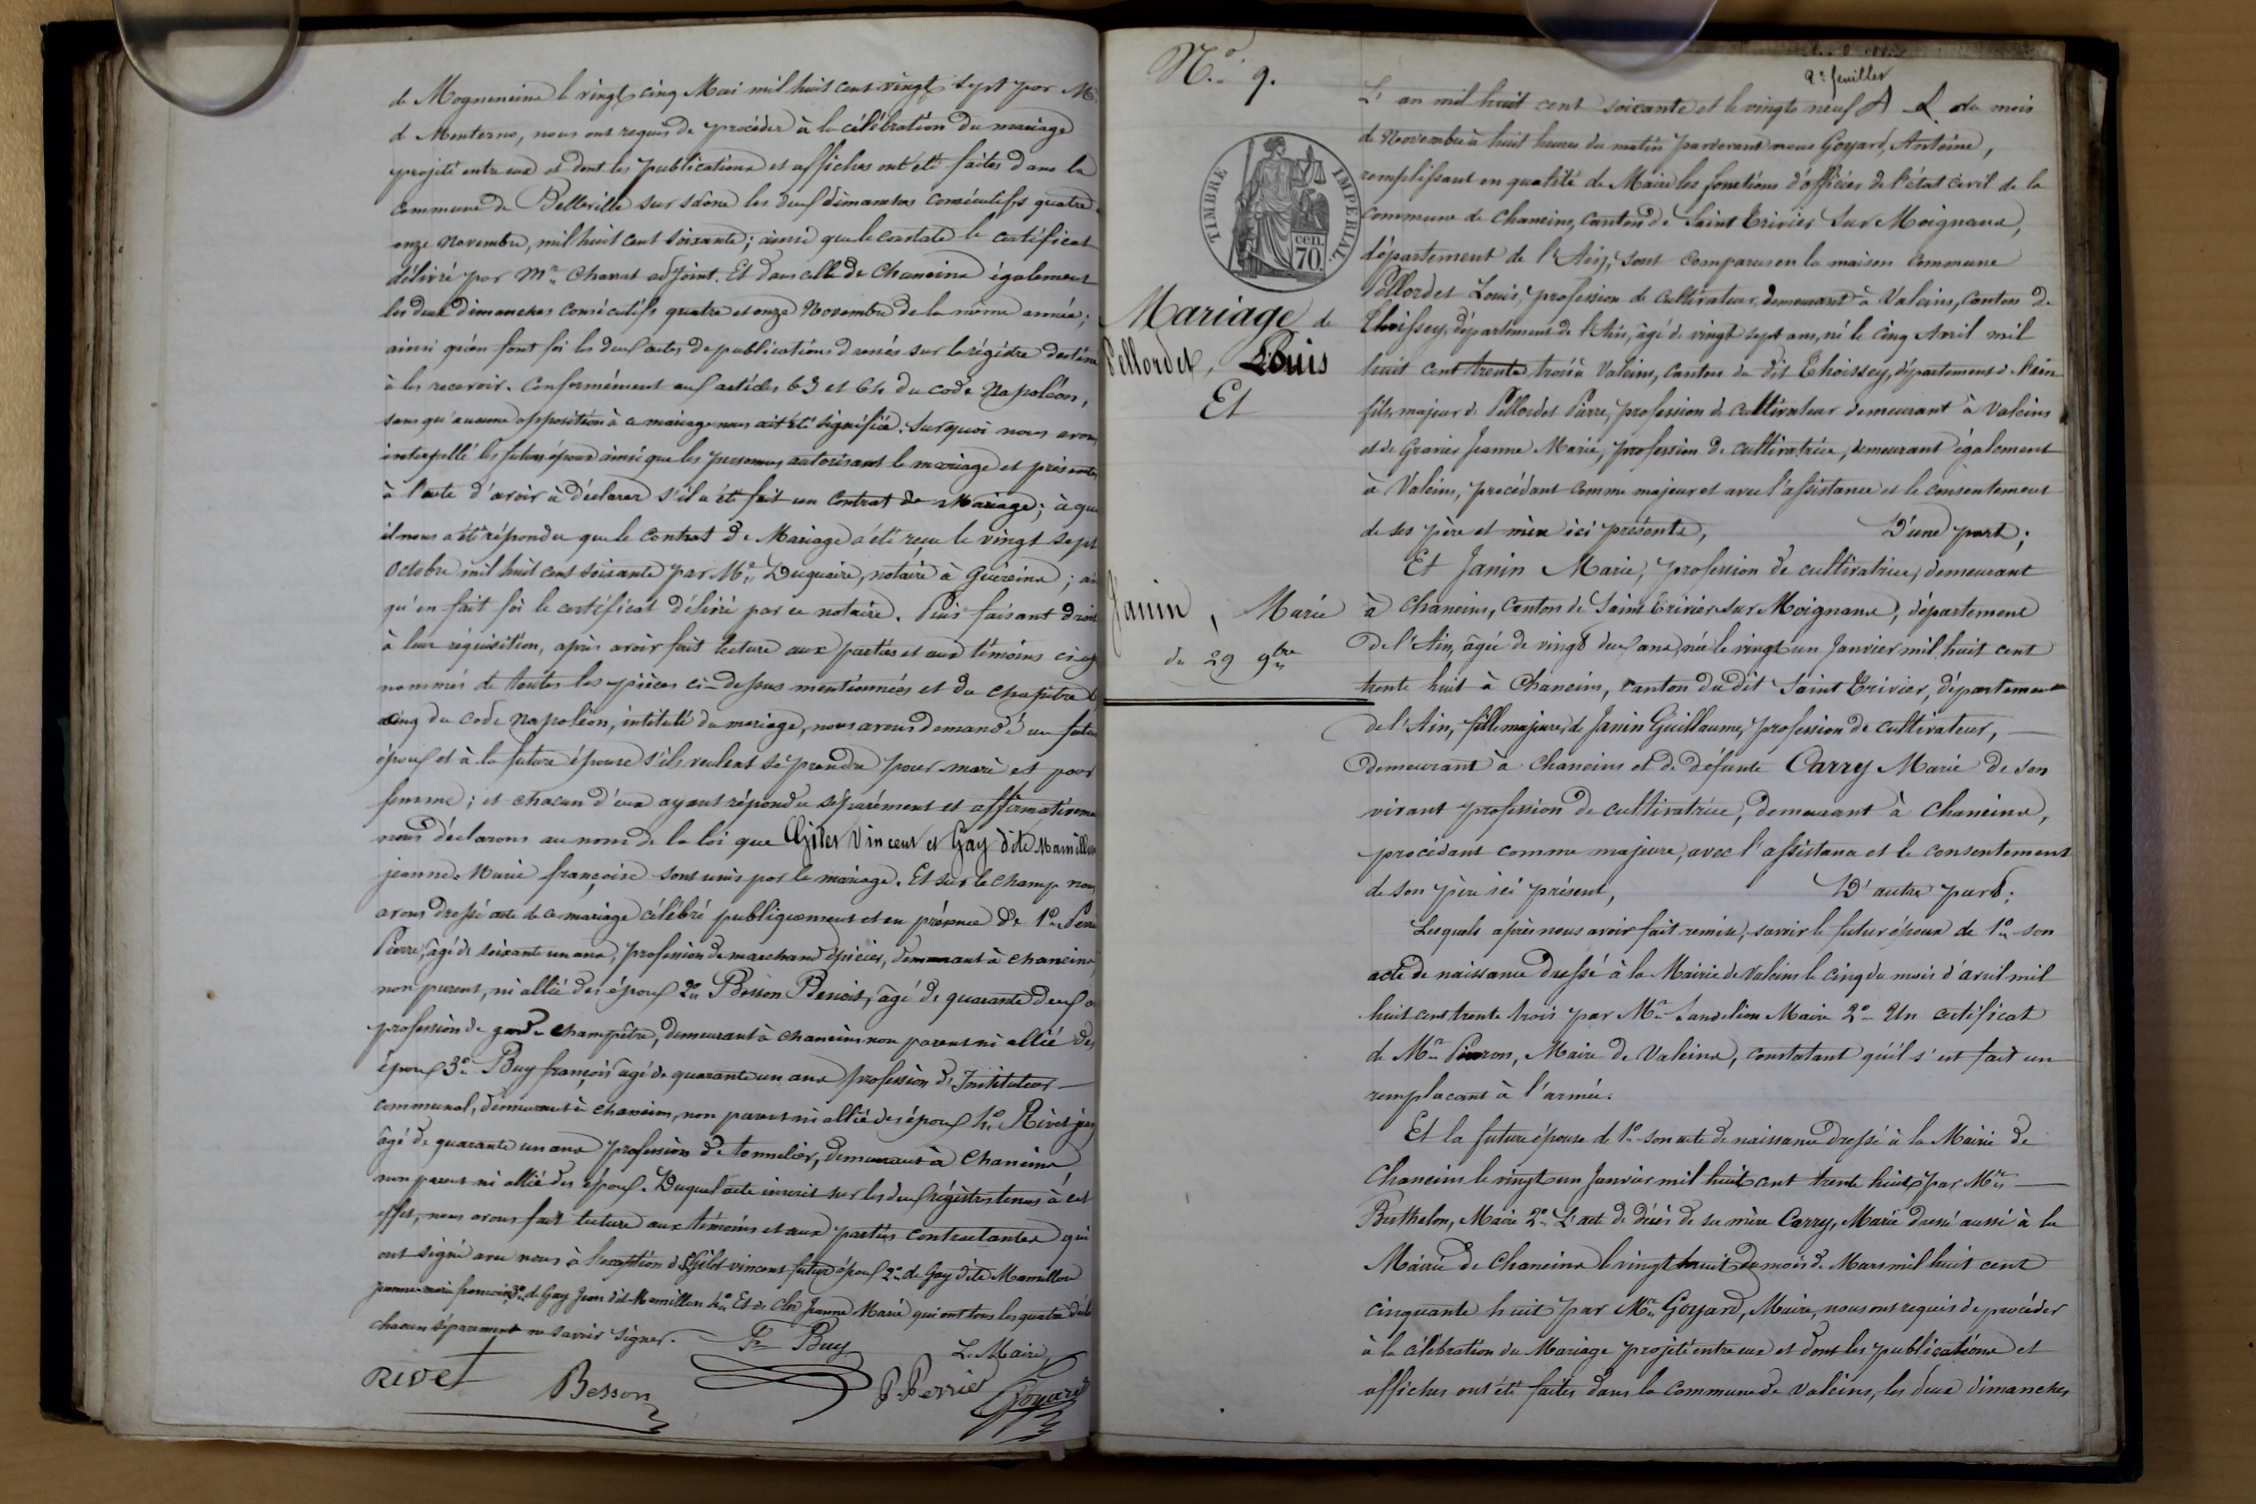 de Mogneneins le vingt cinq Mai mil huit cent vingt sept par Mr
de Menterno, nous ont requis de procéder à la célébration du mariage
projeté entre eux et dont les publications et affiches ont été faites dans la
commune de Belleville sur saône les deux dimanches consécutifs quatre
onze Novembre, mil huit cent soixante; ainsi que le constate le certificat
délivré par Mr Chavat adjoint. Et dans celle de Chaneins également
les deux dimanches consécutifs quatre et onze Novembre de la même année;
ainsi qu'en font foi les deux actes de publications dressés sur le régistre destiné
à les recevoir. Conformément aux articles 63 et 64 du code Napoléon,
sans qu'aucune opposition à ce mariage nous ait été signifiée. Sur quoi nous avons
interpellé les futurs époux ainsi que les personnes autorisant le mariage et présentes
à l'acte d'avoir à déclarer s'il a été fait un Contrat de Mariage; à quoi
il nous a été répondu que le contrat de Mariage a été reçu le vingt sept
Octobre mil huit cent soixante par Me Duquaire, notaire à Guéreins; ain
qu'en fait foi le certificat délivré par ce notaire. Puis faisant droit
à leur réquisition, après avoir fait lecture aux parties et aux témoins ci-ap
nommés de toutes les pièces ci-dessus mentionnées et du chapitre
cinq du code Napoléon, intitulé du mariage, nous avons demandé au futur
époux et à la future épouse s'ils veulent se prendre pour mari et pour
femme; et chacun d'eux ayant répondu séparément et affirmativeme
nous déclarons au nom de la loi que Gilet Vincent et Gay dite Mamillon
jeanne Marie françoise sont unis par le mariage. Et sur le champ nous
avons dressé acte de ce mariage célébré publiquement et en présence de 1o Perrier
Pierre, âgé de soixante un ans, profession de marchand épicier, demeurant à Chaneins,
non parent, ni allié des époux 2o Besson Benoit, âgé de quarante deux a
profession de garde champêtre, demeurant à Chaneins non parent ni allié des
époux 3o Buy françois âgé de quarante un ans profession d'Instituteur
communal, demeurant à Chaneins, non parent ni allié des époux 4o Rivet jean
âgé de quarante un ans profession de tonnelier, demeurant à Chaneins
non parent ni allié des époux. Duquel acte inscrit sur les deux régistres tenus à cet
effet, nous avons fait lecture aux témoins et aux parties contractantes qui
ont signé avec nous à l'exception de Gilet vincent futur époux 2o de Gay dite Mamillon
jeanne marie françoise 3o de Gay Jean dit Mamillon 4o Et de Jeanne Marie qui ont tous les quatre déclaré
chacun séparément ne savoir signer.
Fr Buy
Le Maire
RIVET
Besson
P. Perrier
Goyard
No 9.
9e feuillet
TIMBRE IMPERIAL
cen.
70.
Mariage de
Pellordet, Louis
Et
Janin, Marie
du 29 9bre
L'an mil huit cent soixante et le vingt neuf du mois
de Novembre à huit heures du matin pardevant nous Goyard, Antoine,
remplissant en qualité de Maire les fonctions d'officier de l'état civil de la
commune de Chaneins, canton de Saint Trivier sur Moignans,
département de l'Ain, sont comparus en la maison commune
Pellordet Louis, profession de cultivateur, demeurant à Valeins, canton de
Thoissey, département de l'Ain, âgé de vingt sept ans, né le cinq Avril mil
huit cent trente trois à Valeins, canton du dit Thoissey, département de l'Ain
fils majeur de Pellordet Pierre, profession de cultivateur demeurant à Valeins
et de Gravier Jeanne Marie, profession de cultivatrice, demeurant également
à Valeins, procédant comme majeur et avec l'assistance et le consentement
de ses père et mère ici présents, D'une part;
Et Janin Marie, profession de cultivatrice, demeurant
à Chaneins, canton de Saint Trivier sur Moignans, département
de l'Ain, âgée de vingt deux ans, née le vingt un Janvier mil huit cent
trente huit à Chaneins, canton du dit Saint Trivier, département
de l'Ain, fille majeure de Janin Guillaume, profession de cultivateur,
demeurant à Chaneins et de défunte Carry Marie de son
vivant profession de cultivatrice, demeurant à Chaneins,
procédant comme majeure, avec l'assistance et le consentement
de son père ici présent, D'autre part;
Lesquels après nous avoir fait remise, savoir le futur époux de 1o son
acte de naissance dressé à la Mairie de Valeins le cinq du mois d'avril mil
huit cent trente trois par Mr Sandelion Maire 2o Un certificat
de Mr Pierron, Maire de Valeins, constatant qu'il s'est fait un
remplacant à l'armée.
Et la future épouse de 1o son acte de naissance dressé à la Mairie de
Chaneins le vingt un Janvier mil huit cent trente huit par Mr
Berthelon, Maire 2o L'acte de décès de sa mère Carry, Marie dressé aussi à la
Mairie de Chaneins le vingt huit du mois de Mars mil huit cent
cinquante huit par Mr Goyard, Maire, nous ont requis de procéder
à la célébration du Mariage projeté entre eux et dont les publications et
affiches ont été faites dans la commune de Valeins, les deux dimanches